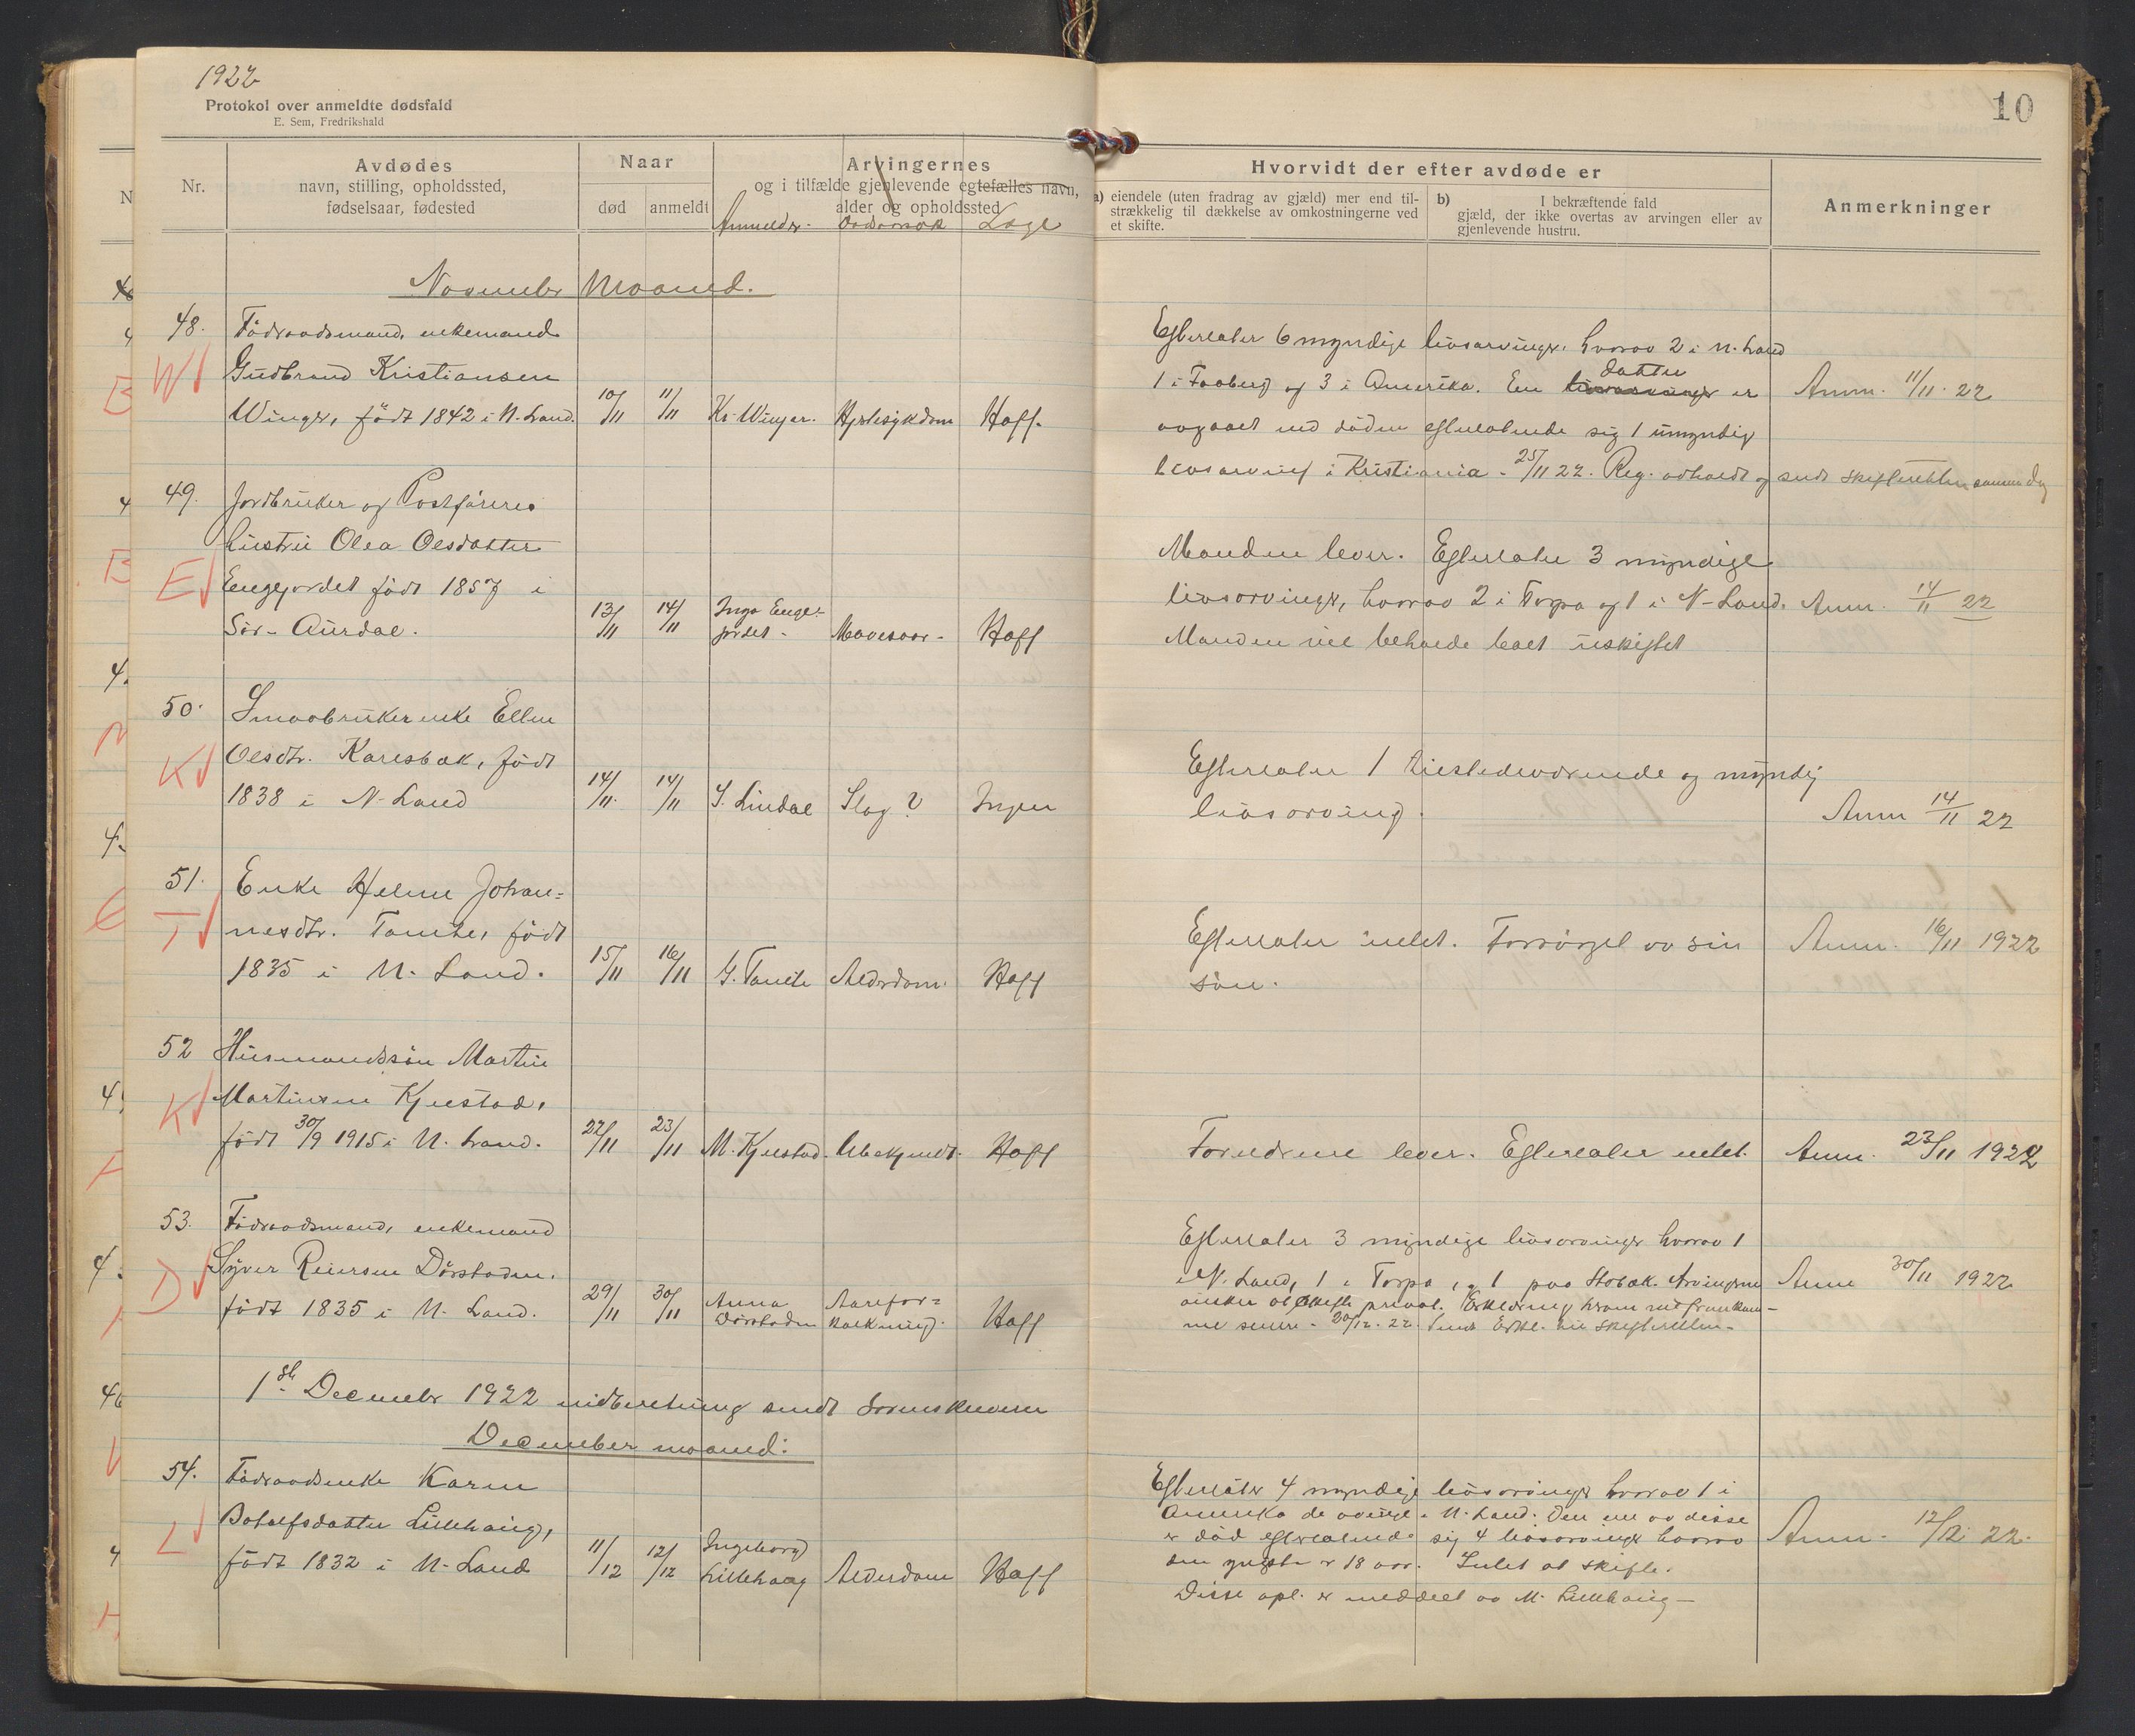 1922
Protokol over anmeldte dødsfald
E. Sem, Fredrikshald
10
Nr.
Avdødes
navn, stilling, opholdssted,
fødselsaar, fødested
Naar
død
anmeldt
Arvingernes
og i tilfælde gjenlevende egtefælles navn,
alder og opholdssted
Anmelder. Dødsårsak Læge
Hvorvidt der efter avdøde er
a) eiendele (uten fradrag av gjæld) mer end til-
strækkelig til dækkelse av omkostningerne ved
et skifte.
b) I bekræftende fald
gjæld, der ikke overtas av arvingen eller av
gjenlevende hustru.
Anmerkninger
November Maaned.
48. Födraadsmand, enkemand
Gudbrand Kristiansen
Winger, födt 1842 i N. Land.
10/11 11/11 Kr. Winger. Hjertesykdom Hoff.
Efterlater 6 myndige livsarvinger, hvorav 2 i N. Land
1 i Faaberg og 3 i Amerika. En datter er
avgaaet ved döden efterlatende sig 1 umyndig
livsarving i Kristiania. 25/11 22. Reg. avholdt og sendt skifteretten samme dag
Anm. 11/11. 22
W
49. Jordbruker og Postförers
hustru Olea Olsdatter
Engejordet födt 1857 i
Sör-Aurdal.
13/11 14/11 Inga Enge-
jordet - Mavesaar - Hoff
Manden lever. Efterlater 3 myndige
livsarvinger, hvorav 2 i Torpa og 1 i N-Land.
Manden vil beholde boet uskiftet
Anm. 14/11 22
E
50. Smaabrukerenke Ellen
Olsdtr. Karlsbak, födt
1838 i N-Land
14/11. 14/11 S. Lindal Slag? Ingen
Efterlater 1 tilstedeværende og myndig
livsarving.
Anm 14/11 22
K
51. Enke Helene Johan-
nesdtr. Tomte, födt
1835 i N. Land.
15/11 16/11 G. Tomte Alderdom. Hoff
Efterlater intet. Forsörget av sin
sön.
Anm. 16/11 1922
T
52 Husmandssön Martin
Martinsen Kjelstad,
födt 30/9 1915 i N. Land.
22/11 23/11 M. Kjelstad. Ubekjendt. Hoff
Forældrene lever. Efterlater intet.
Anm. 23/11 1922
K
53. Födraadsmand, enkemand
Syver Reiersen Dörstaden.
födt 1835 i N. Land.
29/11 30/11 Anna
Dörstaden Aarefor-
kalkning. Hoff
Efterlater 3 myndige livsarvinger hvorav 1
i N. Land, 1 i Torpa, og 1 paa Stobæk. Arvingerne
önsker at skifte privat. Erklæring herom vil fremkom-
me senere. 20/12. 22. Sendt Erkl. til skifteretten.
Anm 30/11 1922
D
1ste December 1922 indberetning sendt Sorenskriveren
December maaned:
54. Födraadsenke Karen
Botolfsdatter Lillehaug,
födt 1832 i N-Land
11/12 12/12 Ingeborg
Lillehaug Alderdom Hoff
Efterlater 4 myndige livsarvinger hvorav 1 i
Amerika de övrige i N. Land. Den ene av disse
er död efterlatende sig 4 livsarvinger hvorav
den yngste er 18 aar. Intet at skifte.
Disse opl. er meddelt av M. Lillehaug -
Anm. 12/12 22.
L